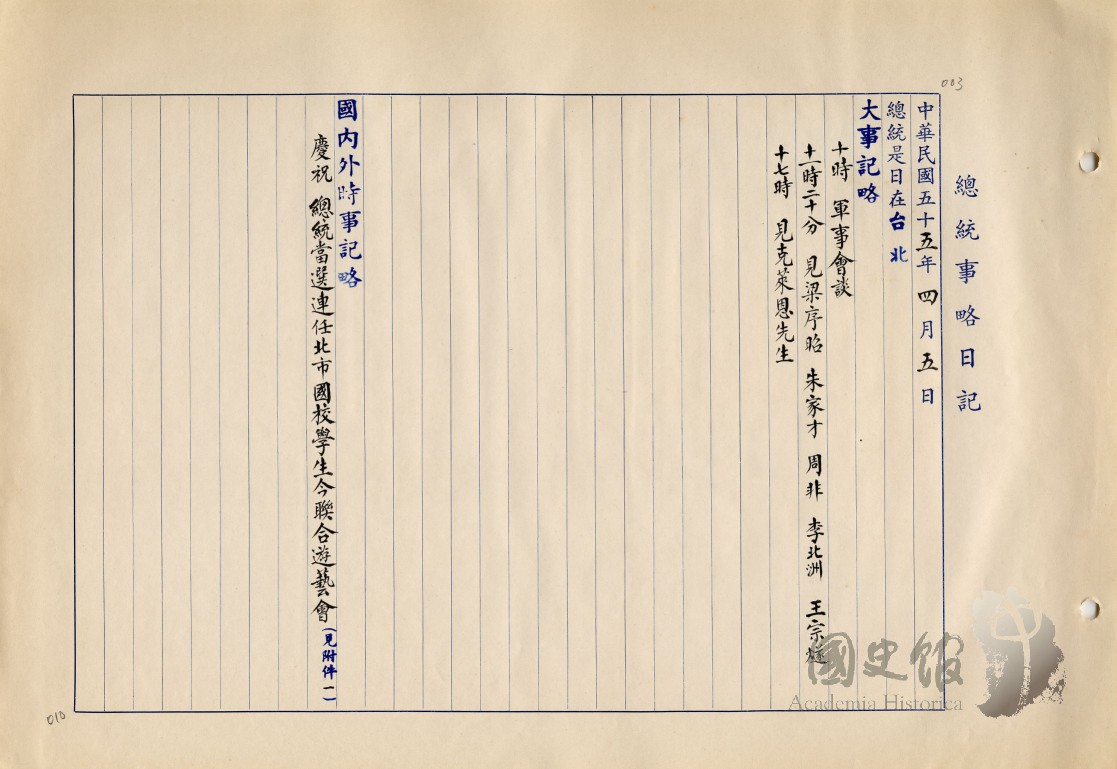 003
總統事略日記
中華民國五十五年四月五日
總統是日在台北
大事記略
十時 軍事會談
十一時二十分 見梁序昭 朱家才 周非 李北洲 王宗燧
十七時 見克萊恩先生
國內外時事記略
慶祝 總統當選連任北市國校學生今聯合遊藝會(見附件一)
010
國史館
Academia Historica